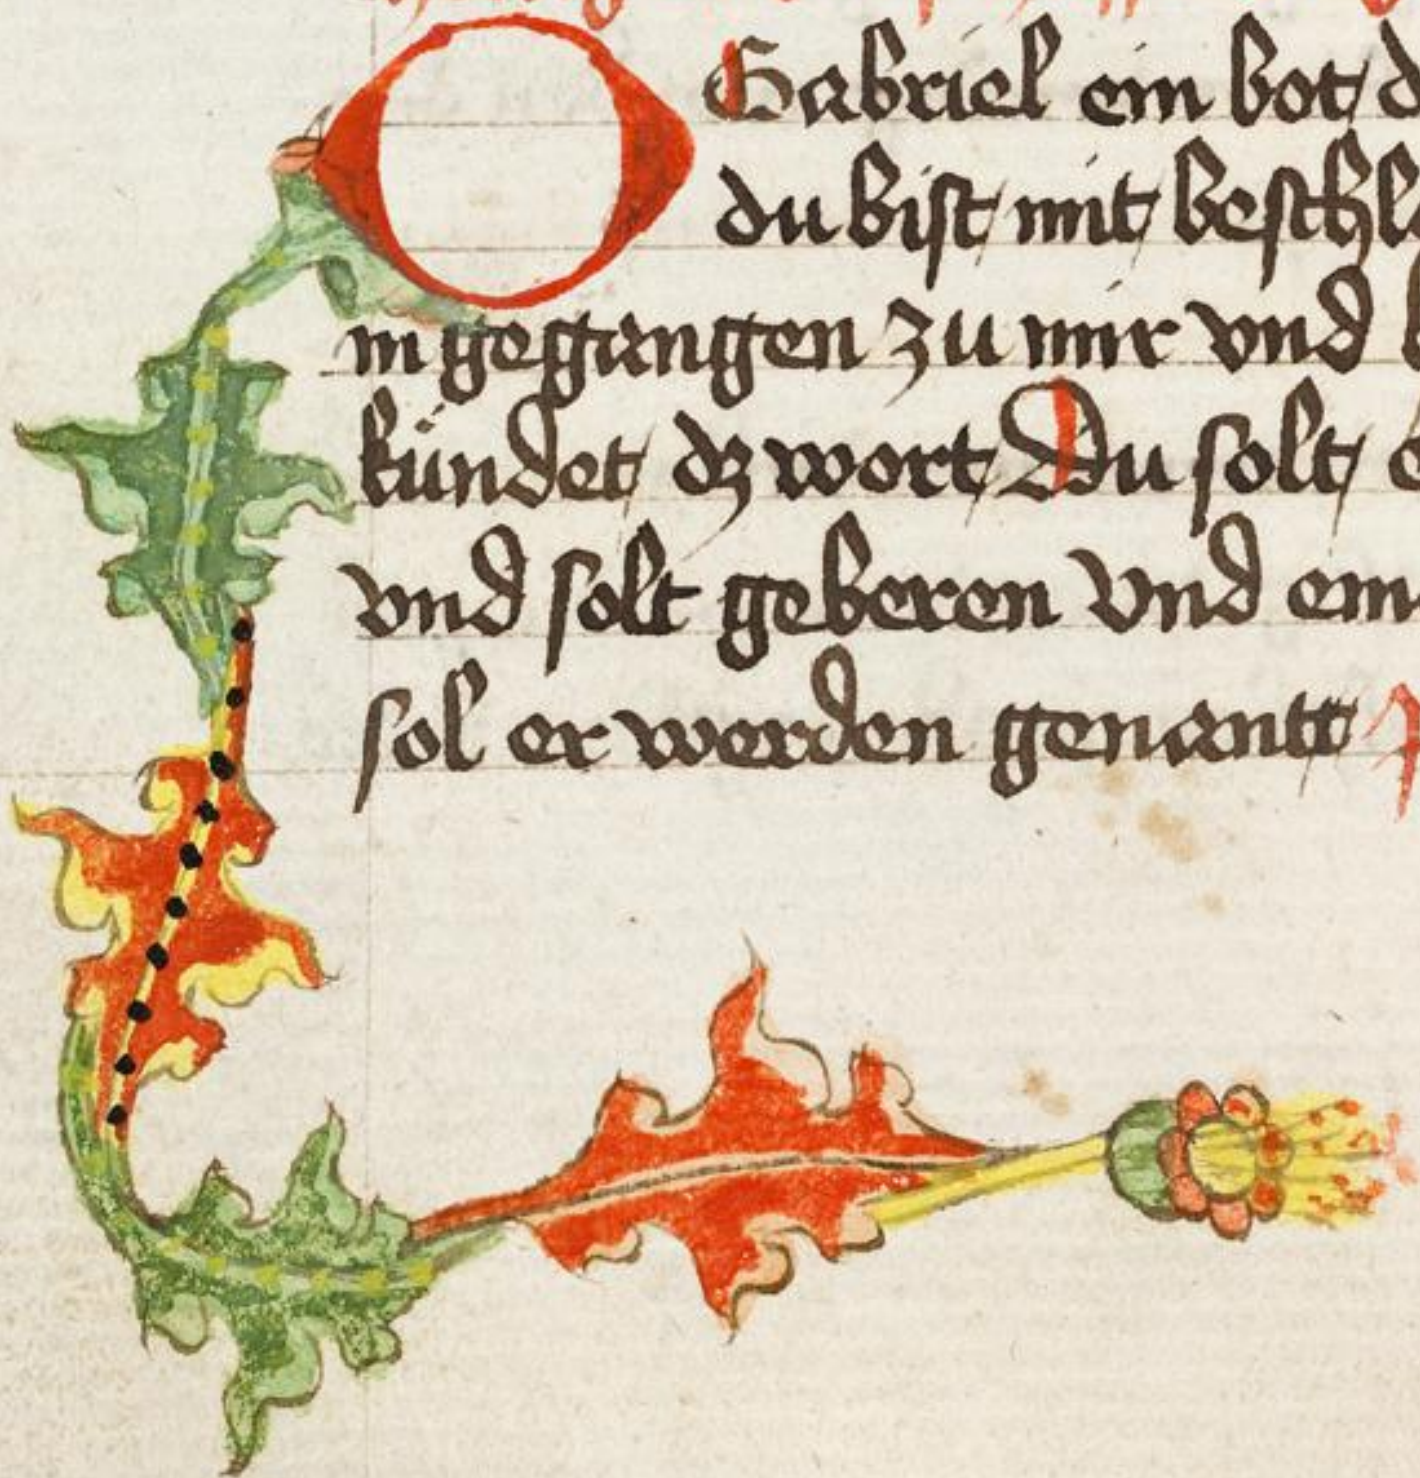 O Gabriel ein bot d
du bist mit beschl
in gegangen zu mir vnd b
kündet dz wort Du solt e
vnd solt geberen Vnd ein
sol er werden genantt